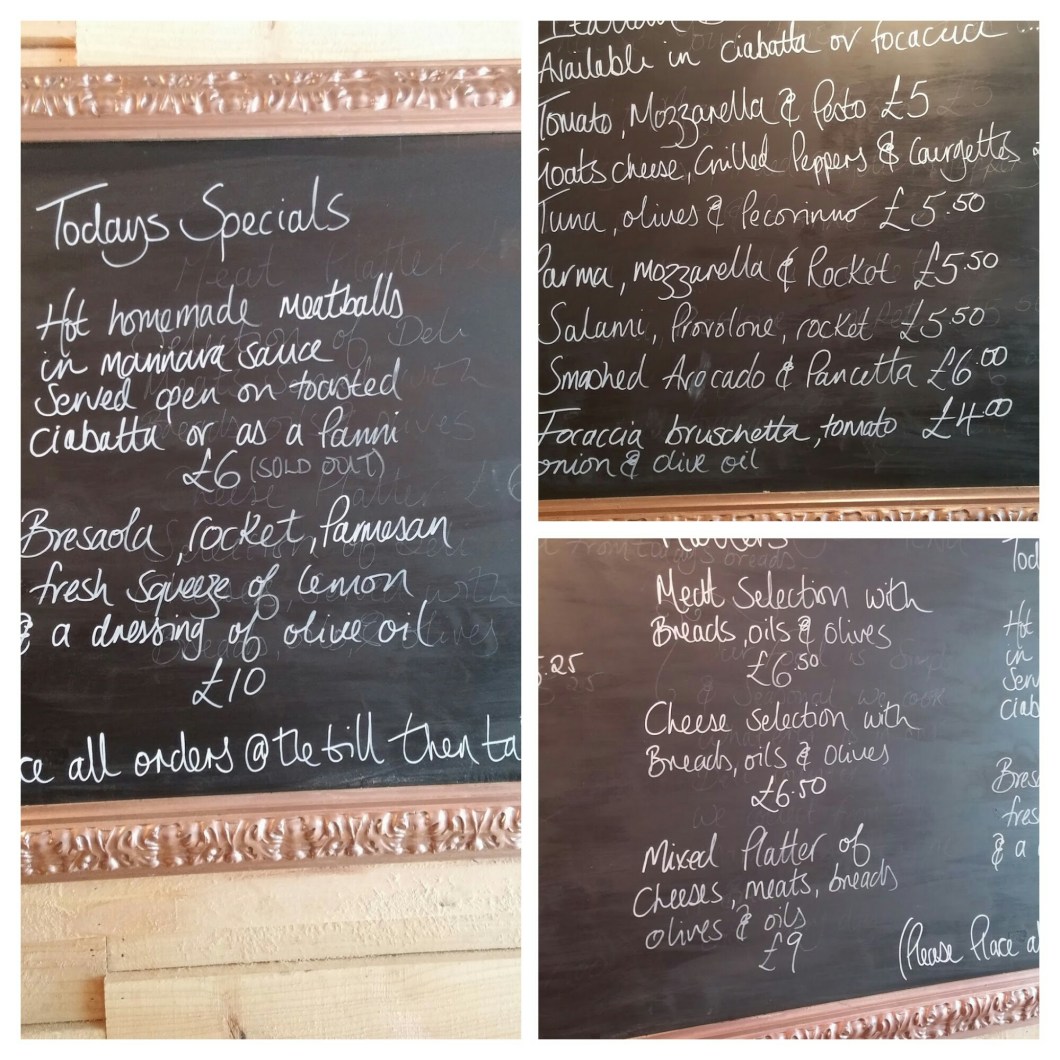 Todays Specials
Hot homemade meatballs
in marinara sauce
Served open on toasted
Ciabatta or as a Panni
£6 (SOLD OUT)
Bresaola, rocket, Parmesan
fresh squeeze of lemon
& a dressing of olive oil
£10
ce all orders @ the till then ta
Available in ciabatta or focaccia ...
Tomato, Mozzarella & Pesto £5
Goats cheese, Grilled Peppers & Courgettes
Tuna, olives & Pecorinno £5.50
Parma, mozzarella & Rocket £5.50
Salami, Provolone, rocket £5.50
Smashed Avocado & Pancetta £6.00
Focaccia bruschetta, tomato £4.00
onion & olive oil
Meat Selection with
Breads, oils & olives
£6.50
5.25
Cheese Selection with
Breads, oils & olives
£6.50
Mixed Platter of
Cheeses, meats, breads
olives & oils
£9
Tod
Hot
in
Serv
ciab
Bres
fres
& a
(Please Place al